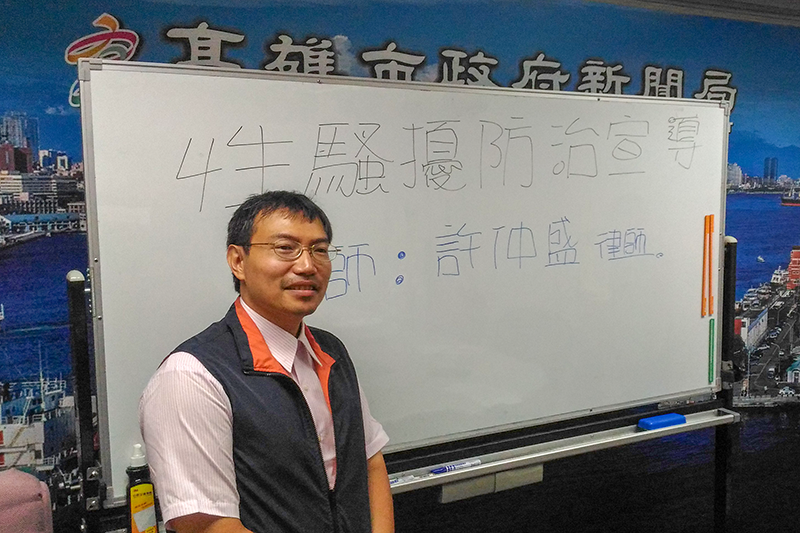 高雄市政府新聞局
性騷擾防治宣導
師：許仲盛 律師。